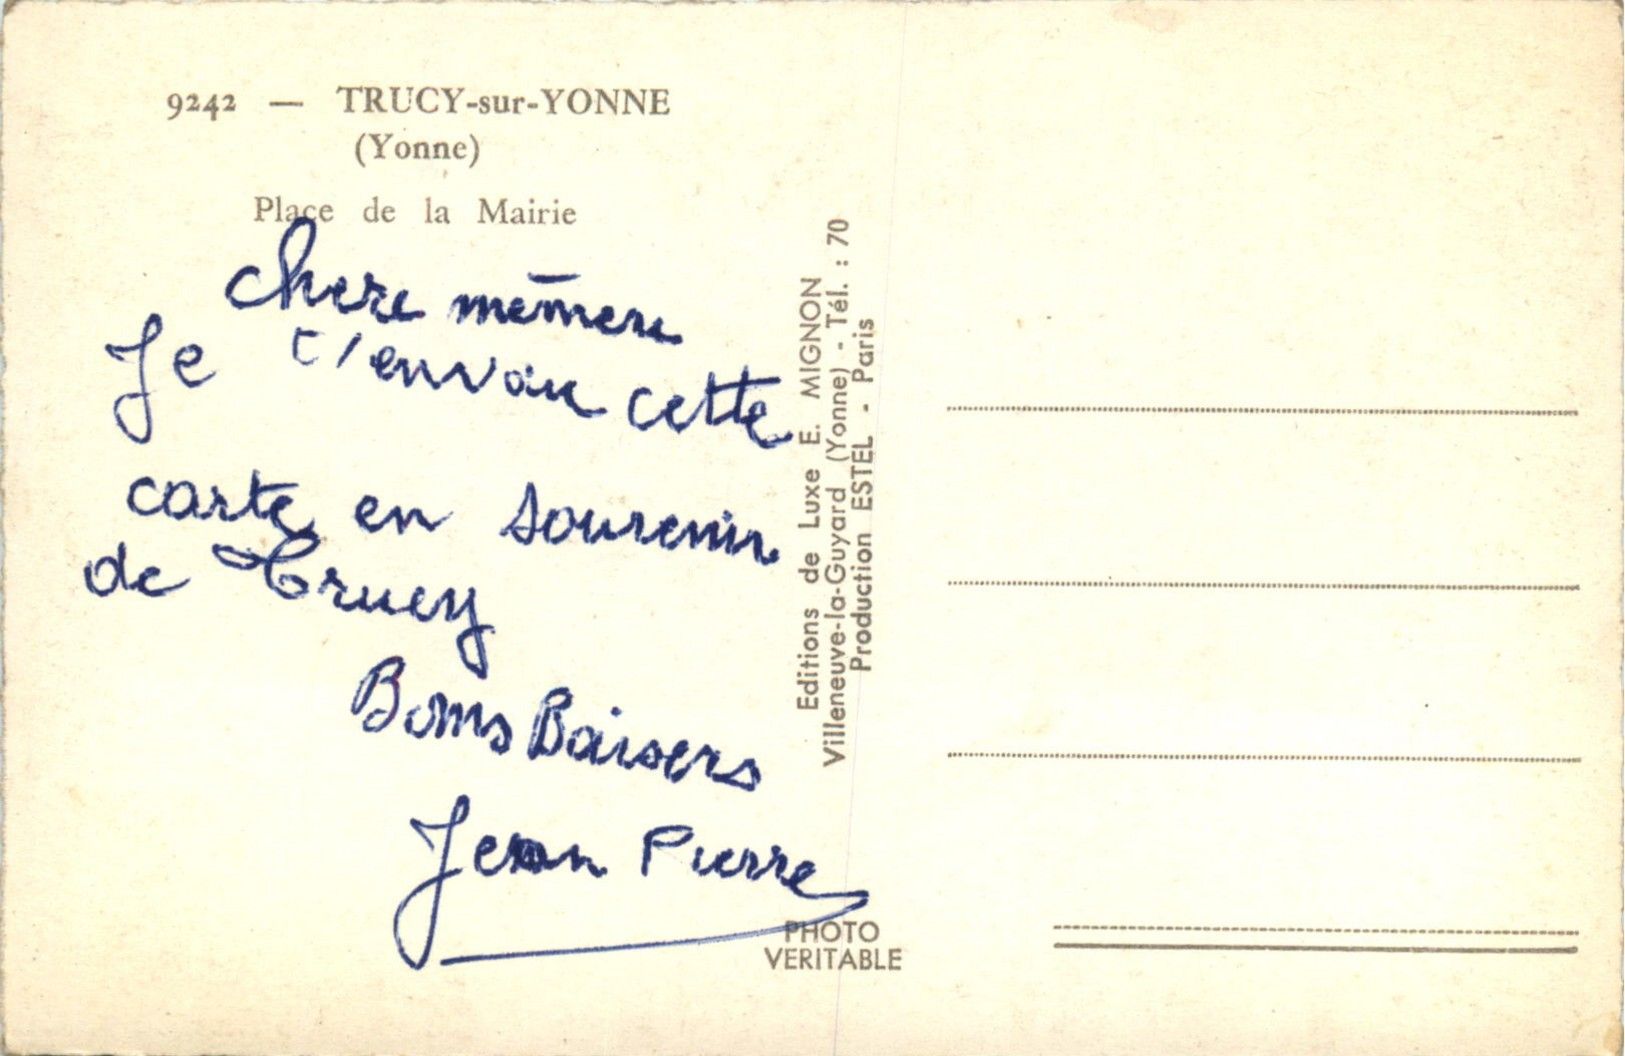 9242 — TRUCY-sur-YONNE
(Yonne)
Place de la Mairie
chere mēmere
Je t'envoie cette
carte en souvenir
de Trucy
Bons Baisers
Jean Pierre
Editions de Luxe E. MIGNON
Villeneuve-la-Guyard (Yonne) - Tél. : 70
Production ESTEL - Paris
PHOTO
VERITABLE